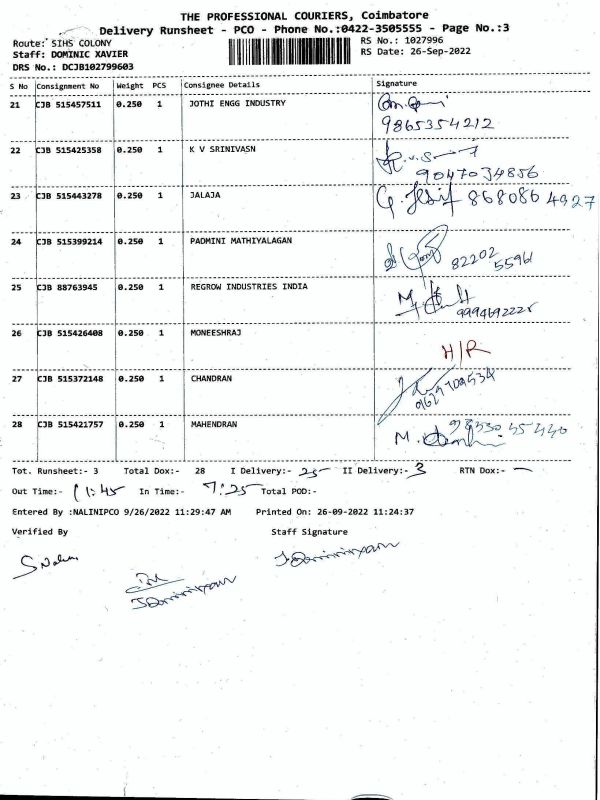 THE PROFESSIONAL COURIERS, Coimbatore
Delivery Runsheet - PCO - Phone No.:0422-3505555 - Page No.:3
Route: SIHS COLONY
RS No.: 1027996
Staff: DOMINIC XAVIER
RS Date: 26-Sep-2022
DRS No.: DCJB102799603
S No Consignment No Weight PCS Consignee Details Signature
21 CJB 515457511 0.250 1 JOTHI ENGG INDUSTRY
9865354212
22 CJB 515425358 0.250 1 K V SRINIVASN
9047034856
23 CJB 515443278 0.250 1 JALAJA 8680864927
24 CJB 515399214 0.250 1 PADMINI MATHIYALAGAN
82202
25 CJB 88763945 0.250 1 REGROW INDUSTRIES INDIA
26 CJB 515426408 0.250 1 MONEESHRAJ
H/R
27 CJB 515372148 0.250 1 CHANDRAN
28 CJB 515421757 0.250 1 MAHENDRAN
Tot. Runsheet:- 3 Total Dox:- 28 I Delivery:- 25 II Delivery:- 3 RTN Dox:- —
Out Time:- 11:45 In Time:- 7:25 Total POD:-
Entered By :NALINIPCO 9/26/2022 11:29:47 AM Printed On: 26-09-2022 11:24:37
Verified By Staff Signature